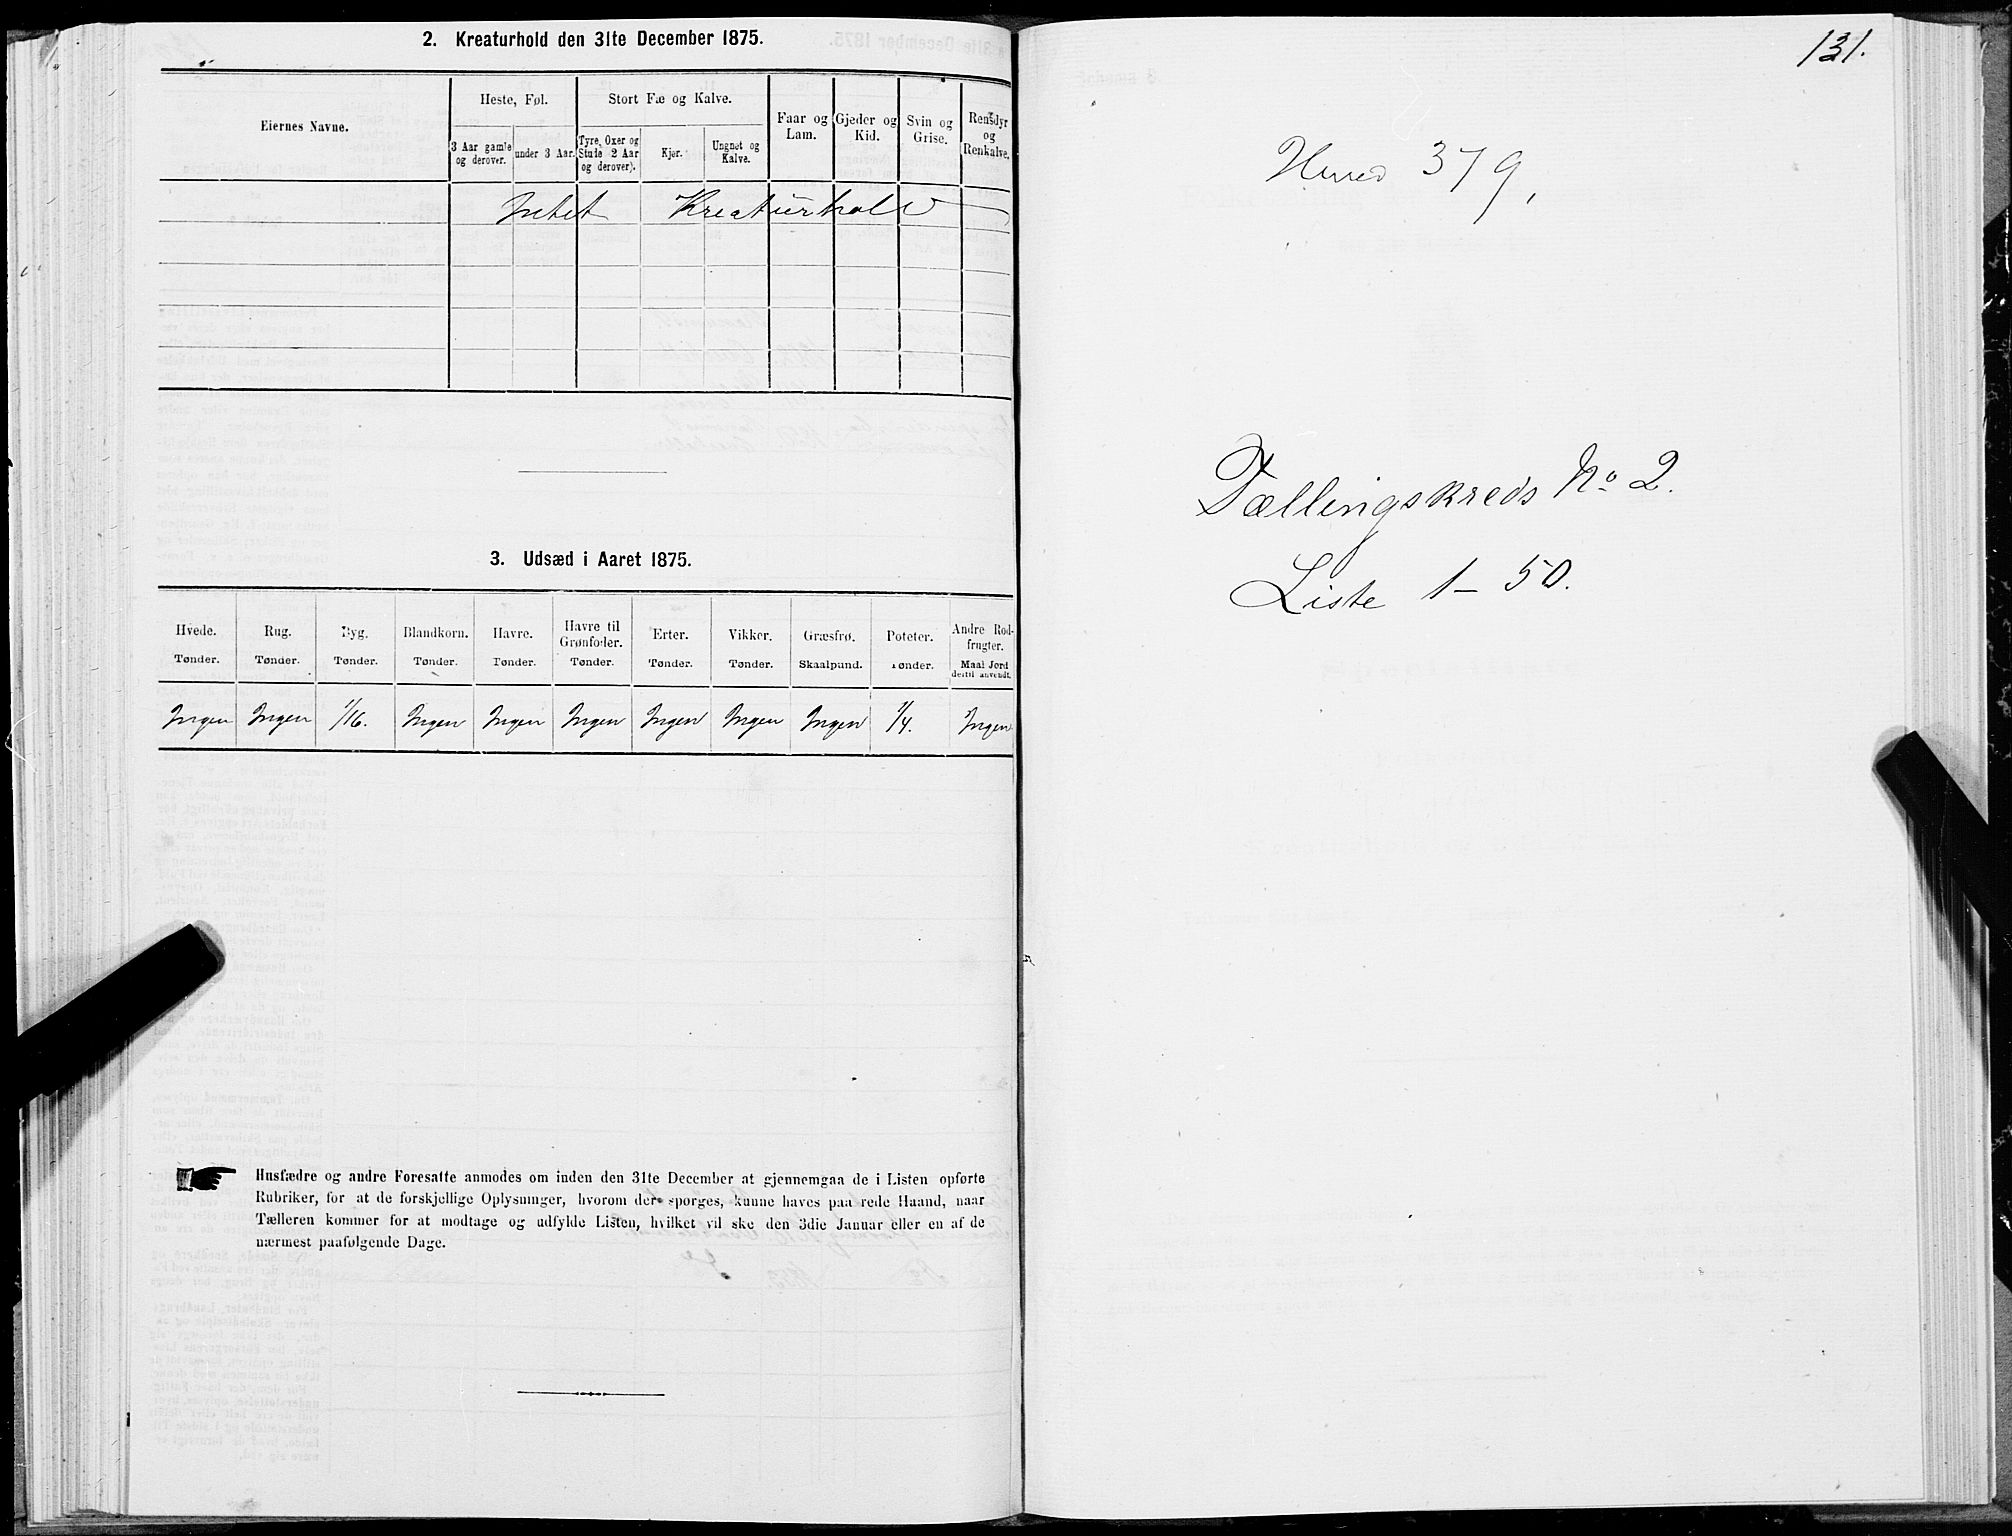 2. Kreaturhold den 31te December 1875.
Eiernes Navne.
Heste, Føl.
3 Aar gamle og derover.
under 3 Aar.
Stort Fæ og Kalve.
Tyre, Oxer og Stude (2 Aar og derover).
Kjør.
Ungnøt og Kalve.
Faar og Lam.
Gjeder og Kid.
Svin og Grise.
Rensdyr og Renkalve.
Intet Kreaturhold
3. Udsæd i Aaret 1875.
Hvede. Rug. Byg. Blandkorn. Havre. Havre til Grønfoder. Erter. Vikker. Græsfrø. Poteter. Andre Rodfrugter.
Tønder. Tønder. Tønder. Tønder. Tønder. Tønder. Tønder. Tønder. Skaalpund. Tønder. Maal Jord dertil anvendt.
Ingen Ingen 1/16. Ingen Ingen Ingen Ingen Ingen Ingen 1/4. Ingen
Husfædre og andre Foresatte anmodes om inden den 31te December at gjennemgaa de i Listen opførte
Rubriker, for at de forskjellige Oplysninger, hvorom der spørges, kunne haves paa rede Haand, naar
Tælleren kommer for at modtage og udfylde Listen, hvilket vil ske den 3die Januar eller en af de
nærmest paafølgende Dage.
131.
379.
Tællingskreds No 2.
Liste 1-50.